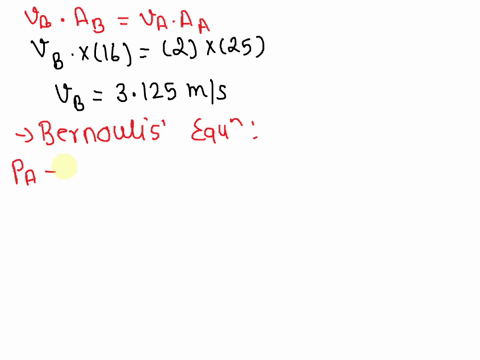 V_B · A_B = V_A · A_A
V_B · x(16) = (2) x(25)
V_B = 3.125 m/s
→ Bernoulis' Equⁿ:
P_A -